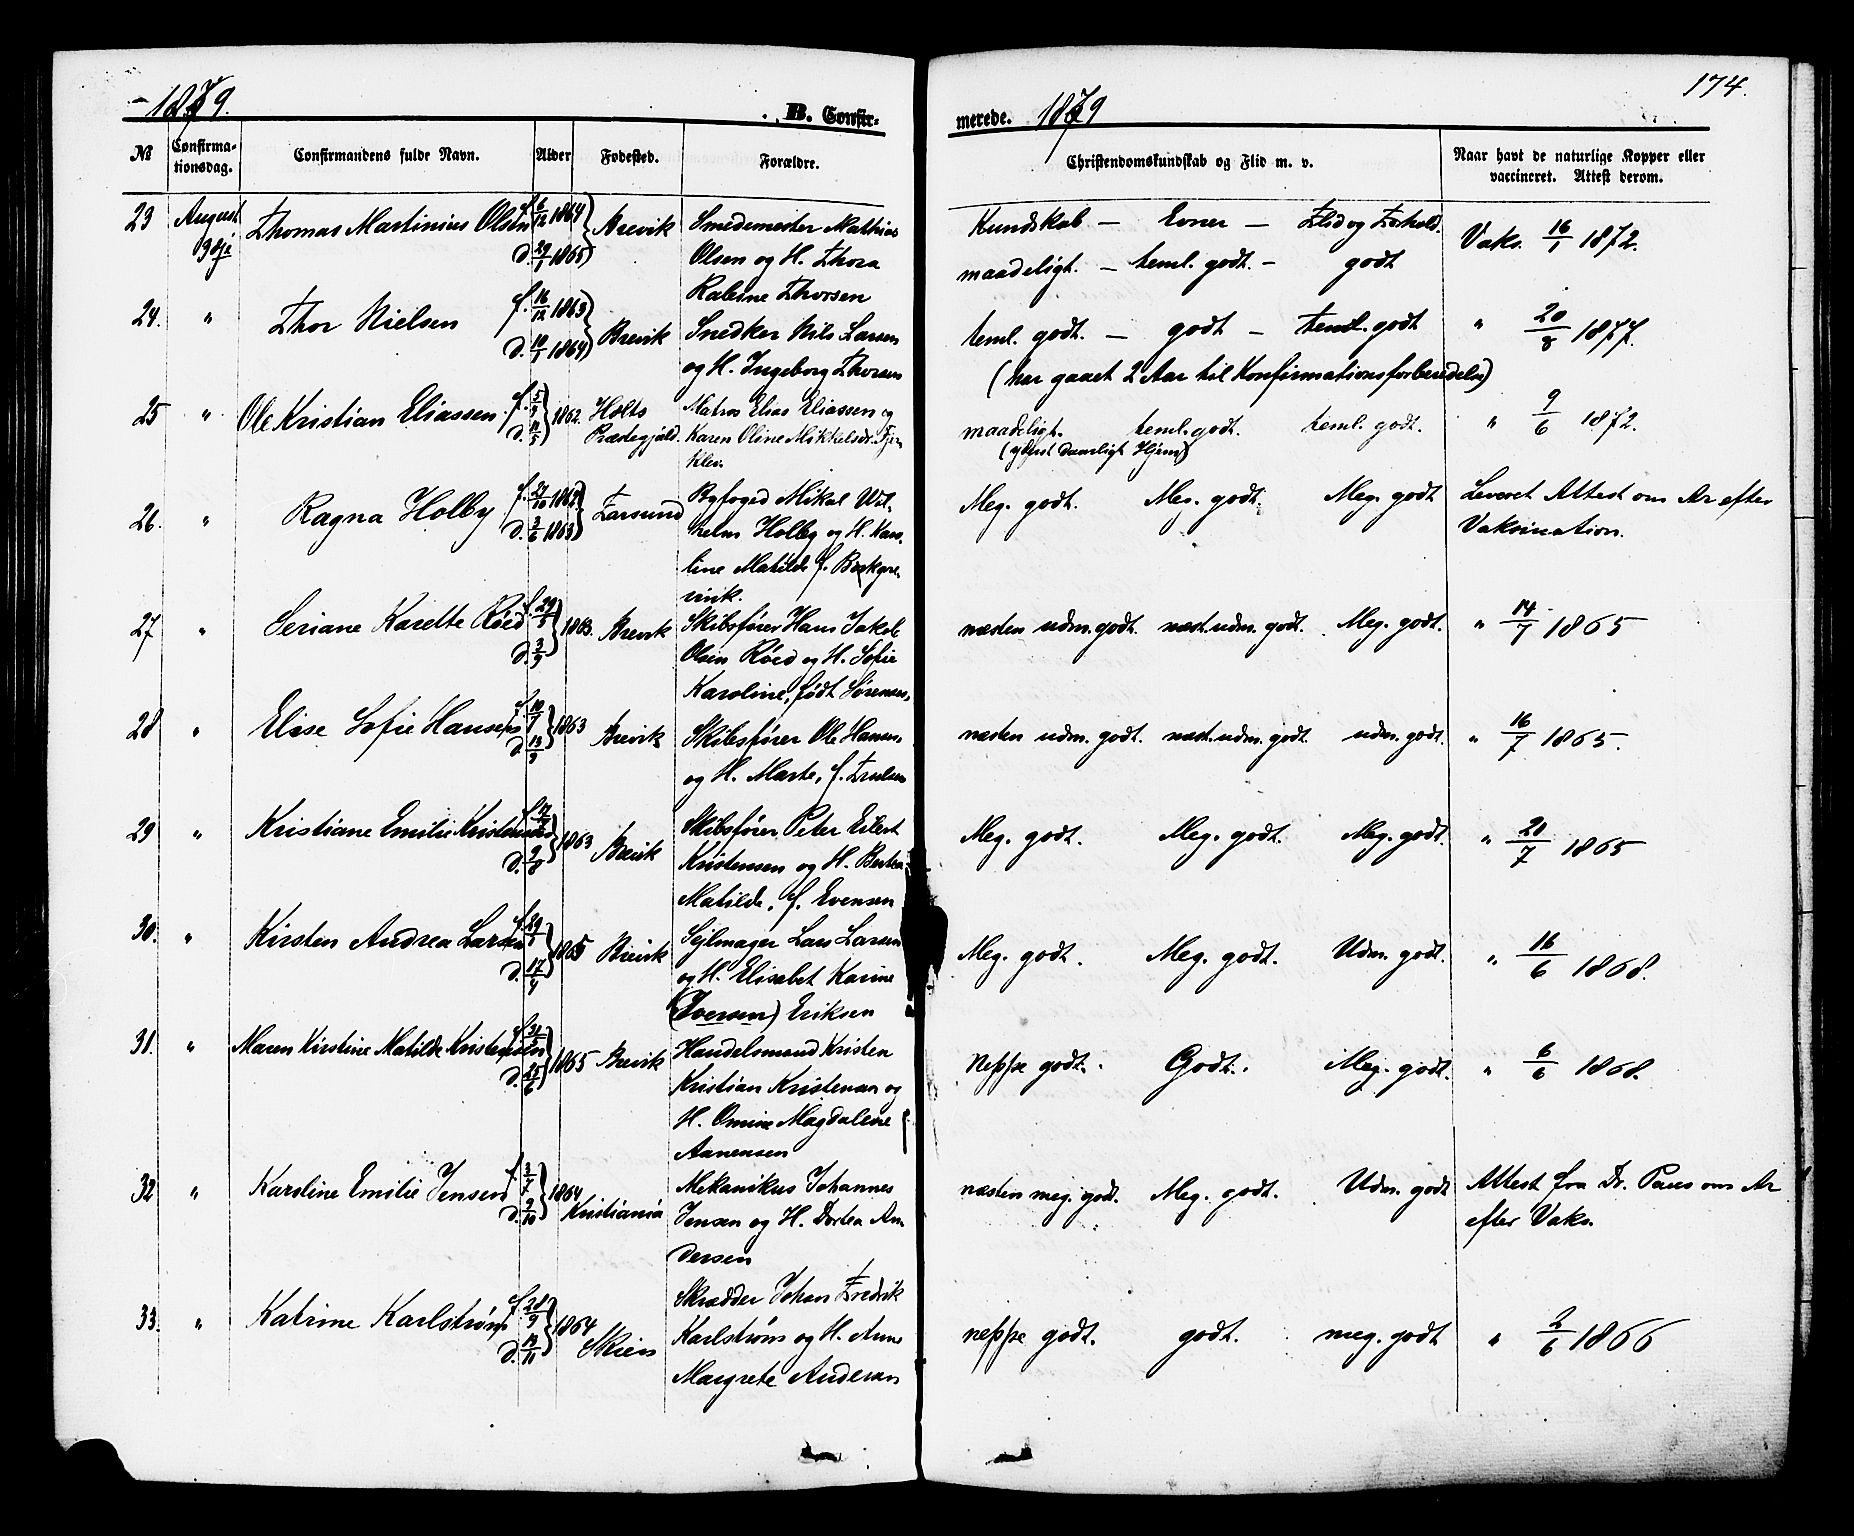 1879.
B. Confir-
merede. 1879
174.
№ Confirma-tionsdag. Confirmandens fulde Navn. Alder Fødested. Forældre. Christendomskundskab og Flid m. v. Naar havt de naturlige Kopper eller vaccineret. Attest derom.
23 August Thomas Martinius Olsen f. 6/12 1864 Brevik Smedemester Mathias Kundskab — Evner — Flid og Forhold.
d. 29/1 1865 Olsen og H. Thora maadeligt. — teml. godt. — godt Vaks. 16/1 1872.
Thorsen
24. " Thor Nielsen f. 16/12 1863 Brevik Snedker Nils Larsen teml. godt. — godt — teml. godt " 20/8 1877.
d. 10/1 1864 og H. Ingeborg Thorsen (har gaaet 2 Aar til Konfirmationsforberedelse)
25 " Ole Kristian Eliassen f. d. 1862. Holts Matros Elias Eliassen og maadeligt. teml. godt. teml. godt. " 9/6 1872.
Præstegjæld. Karen Oline Mikkelsdr. (yderst daarligt Hjem)
26. " Ragna Holby f. 1862 Farsund Byfoged Mikal Wil- Meg. godt. Meg. godt. Meg. godt Leveret Attest om Ar efter
d. 3/6 1863 helm Holby og H. Karo- Vaksination.
line Matilde f.
27 " Seriane Karelte Röed f. 29/5 1863. Brevik Skibsfører Hans Jakob næsten udm. godt. næst. udm. godt. Meg. godt. " 14/7 1865
d. 3/9 Olsen Röed og H. Sofie
Karoline, født Sørensen.
28 " Elise Sofie Hansen f. d. 1863 Brevik Skibsfører Ole Hansen næsten udm. godt. næst. udm. godt. udm. godt. " 16/7 1865.
og H. Marte, f.
29 " Kristiane Emilie Kristensen f. d. 1863 Brevik Skibsfører Peter Eilert Meg. godt. Meg. godt. Meg. godt. " 20/7 1865
Kristensen og H. Bertea
Matilde, f. Evensen
30. " Kirsten Andrea Larsen f. d. 1865 Brevik Sejlmager Lars Larsen Meg. godt. Meg. godt. Udm. godt. " 16/6 1868.
og H. Elisabet Karine
(Iversen) Eriksen
31. " Maren Kirstine Matilde Kristensen f. d. 1865 Brevik Handelsmand Kristen Neppe godt. Godt. Meg. godt. " 6/6 1868.
Kristian Kristensen og
H. Omine Magdalene
Aanensen
32 " Karoline Emilie Jensen f. 3/7 1864 Kristiania Mekanikus Johannes næsten meg. godt. Meg. godt. Udm. godt Attest fra Dr. Paus om Ar
d. 9/10 Jensen og H. Dortea An- efter Vaks.
dersen
33. " Katrine Karlstrøm f. 28/9 1864 Skien Skrædder Johan Fredrik
d. 13/11 Karlstrøm og H. Anne neppe godt. godt. meg. godt " 2/6 1866
Margrete Andersen